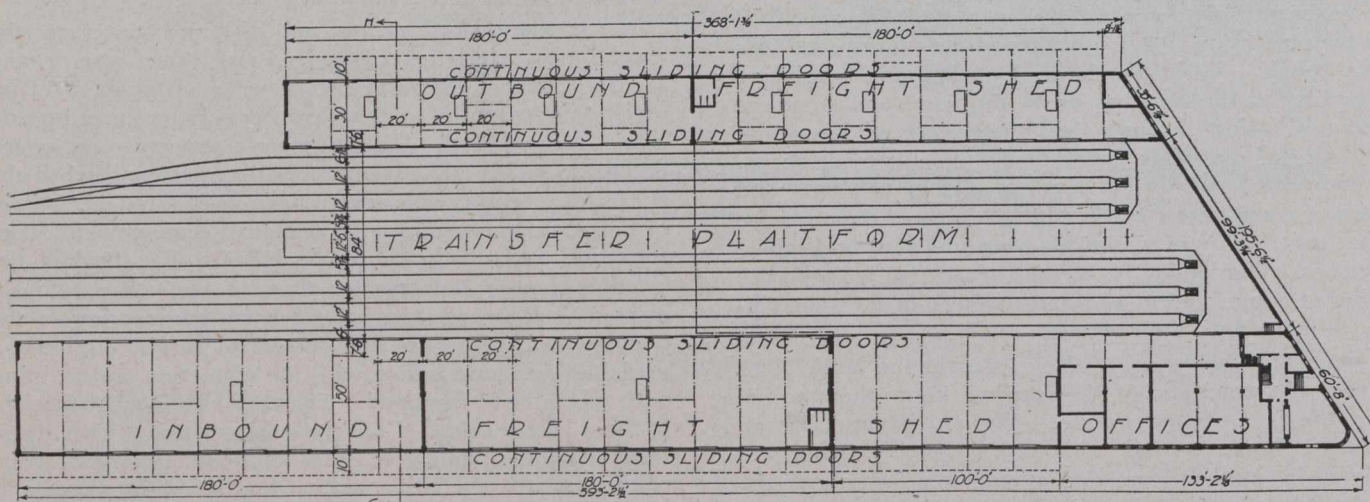 H
368'-1⅜"
180'-0"
180'-0"
8'-1⅜"
CONTINUOUS SLIDING DOORS
OUTBOUND FREIGHT SHED
10'
30'
20' 20' 20'
CONTINUOUS SLIDING DOORS
12'
12'
84'
TRANSFER PLATFORM
12'
12'
195'-6½"
99'-3¾"
60'-8"
CONTINUOUS SLIDING DOORS
20' 20' 20'
50'
INBOUND FREIGHT SHED OFFICES
10'
CONTINUOUS SLIDING DOORS
180'-0"
180'-0"
100'-0"
133'-2½"
593'-2½"